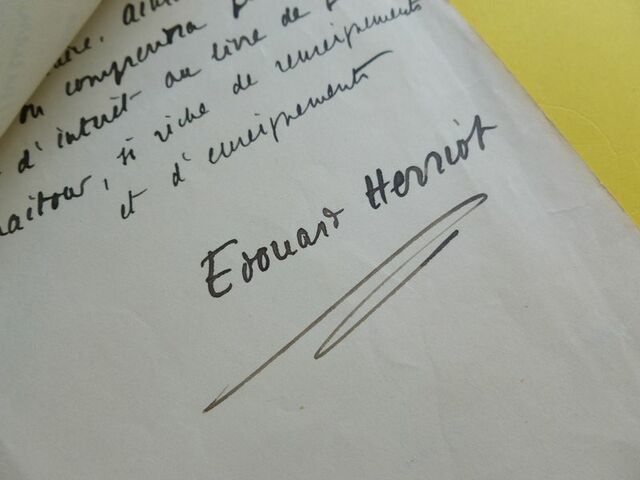 on comprendra
d'intérêt au livre de
, si riche de renseignements
et d'enseignements
Edouard Herriot